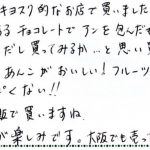 キヨスク的なお店で買いました
るチョコレートでアンを包んだも
だし買ってみるか…と思い
あんこがおいしい！フルーツ
くない!!
阪で買いますね
が楽しみです。大阪でも売って